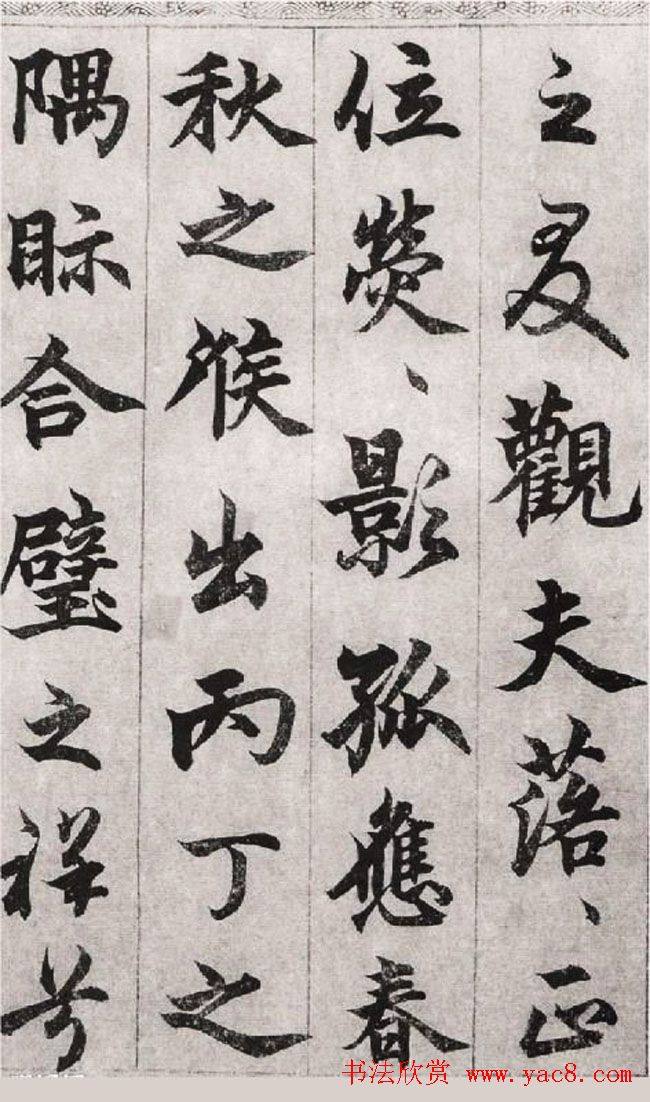 之觀夫落、正
位熒、影孤應春
秋之候出丙丁之
隅眎合璧之祥兮
书法欣赏 www.yac8.com